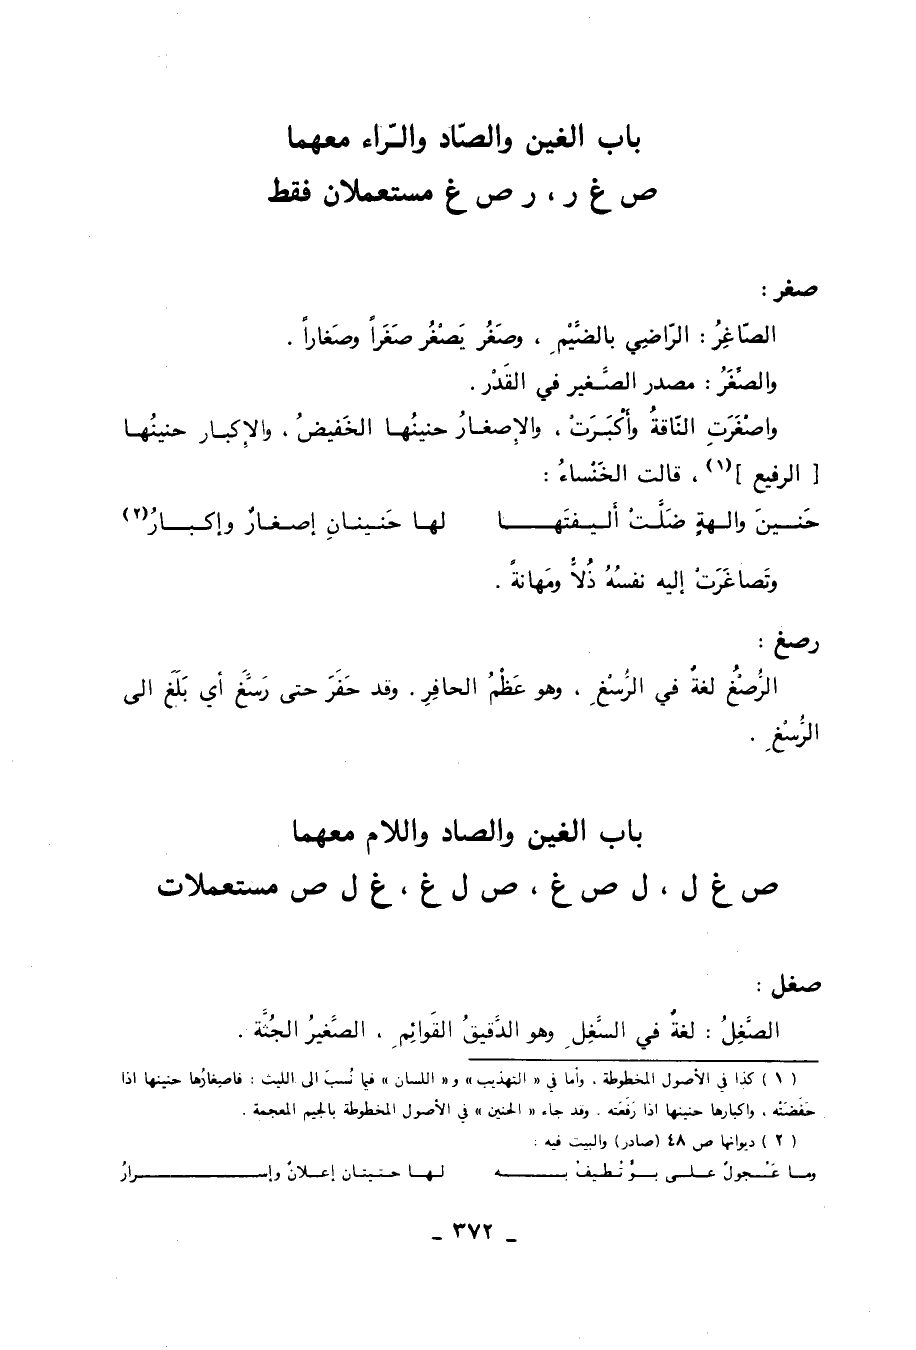 باب الغين والصّاد والرّاء معهما
ص غ ر ، ر ص غ مستعملان فقط
صغر :
الصّاغِرُ : الرّاضِي بالضَّيْمِ ، وصَغُر يَصْغُر صَغَراً وصَغاراً .
والصِّغَرُ : مصدر الصَّغير في القَدْر .
واصْغَرَتِ النّاقةُ وأَكْبَرَتْ ، والإصغارُ حنينُها الخَفيضُ ، والإكبار حنينُها
[ الرفيع ](١) ، قالت الخَنْساءُ :
حَنينَ والهةٍ ضَلَّتْ أليفتَها لها حَنينانِ إصغارٌ وإكبارُ(٢)
وتَصاغَرَتْ إليه نفسُهُ ذُلاًّ ومَهانةً .
رصغ :
الرُّصْغُ لغةٌ في الرُّسْغِ ، وهو عَظْمُ الحافِرِ . وقد حَفَرَ حتى رَسَّغ أي بَلَغ الى
الرُّسْغِ .
باب الغين والصاد واللام معهما
ص غ ل ، ل ص غ ، ص ل غ ، غ ل ص مستعملات
صغل :
الصَّغِلُ : لغةٌ في السَّغِلِ وهو الدَّقيقُ القَوائِمِ ، الصَّغيرُ الجُثَّة .
( ١ ) كذا في الأصول المخطوطة ، وأما في « التهذيب » و « اللسان » فيما نُسبَ الى الليث : فاصغارُها حنينها اذا
خَفَضَتْه ، واكبارها حنينها اذا رَفَعَته . وقد جاء « الحنين » في الأصول المخطوطة بالجيم المعجمة .
( ٢ ) ديوانها ص ٤٨ (صادر) والبيت فيه :
وما عَجولٌ على بوٍّ تُطيفُ به لها حنينان إعلانٌ وإسرارُ
ـ ٣٧٢ ـ